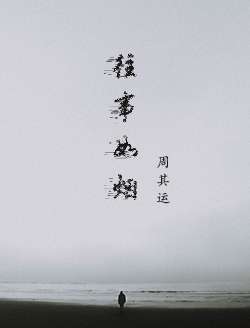 往事如
周其运